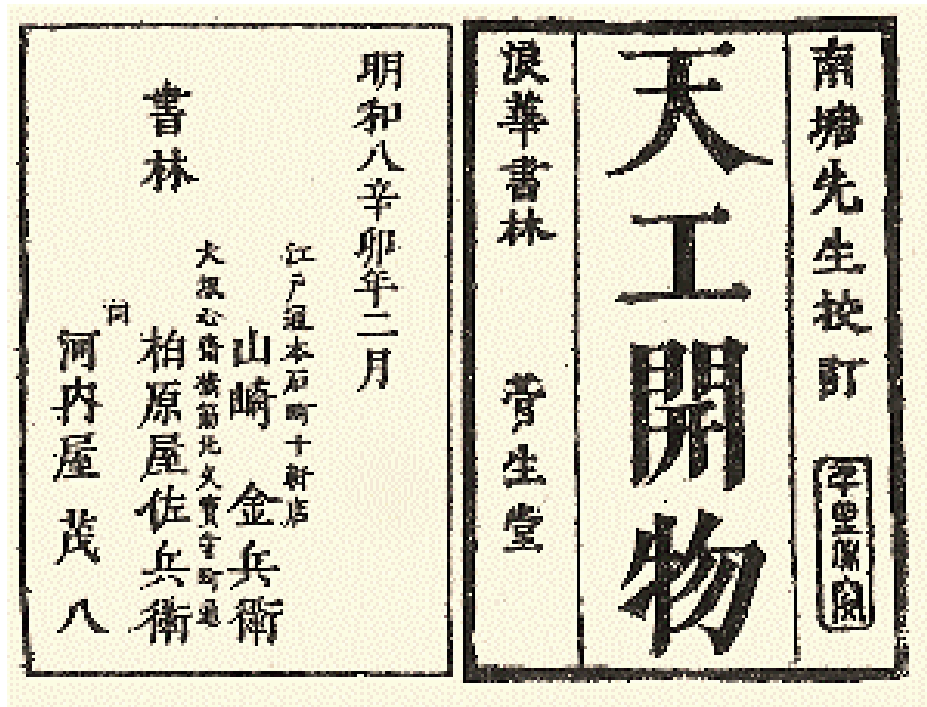 南塘先生校訂
天工開物
浪華書林 菅生堂
明和八辛卯年二月
書林
江戸通本石町十軒店
山崎 金兵衛
大坂心齋橋筋北久寳寺町通
柏原屋佐兵衛
同
河内屋 茂八